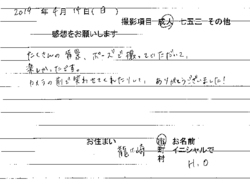 2019年4月14日(日)
撮影項目 成人 七五三 その他
感想をお願いします
たくさんの背景、ポーズで撮っていただいて、
楽しかったです。
カメラの前で笑わせてくれたりして、ありがとうございました!
お住まい
龍ヶ崎
市
町
村
お名前
イニシャルで
H.O